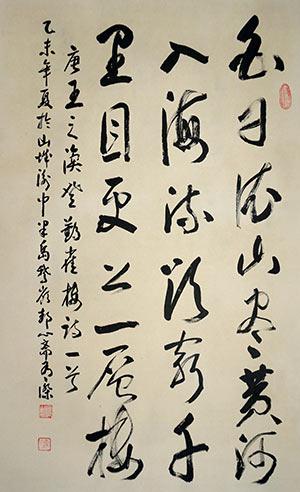 白日依山尽黄河
入海流欲穷千
里目更上一层楼
唐王之涣登鹳雀楼诗一首
乙未年夏於山城渝中半岛